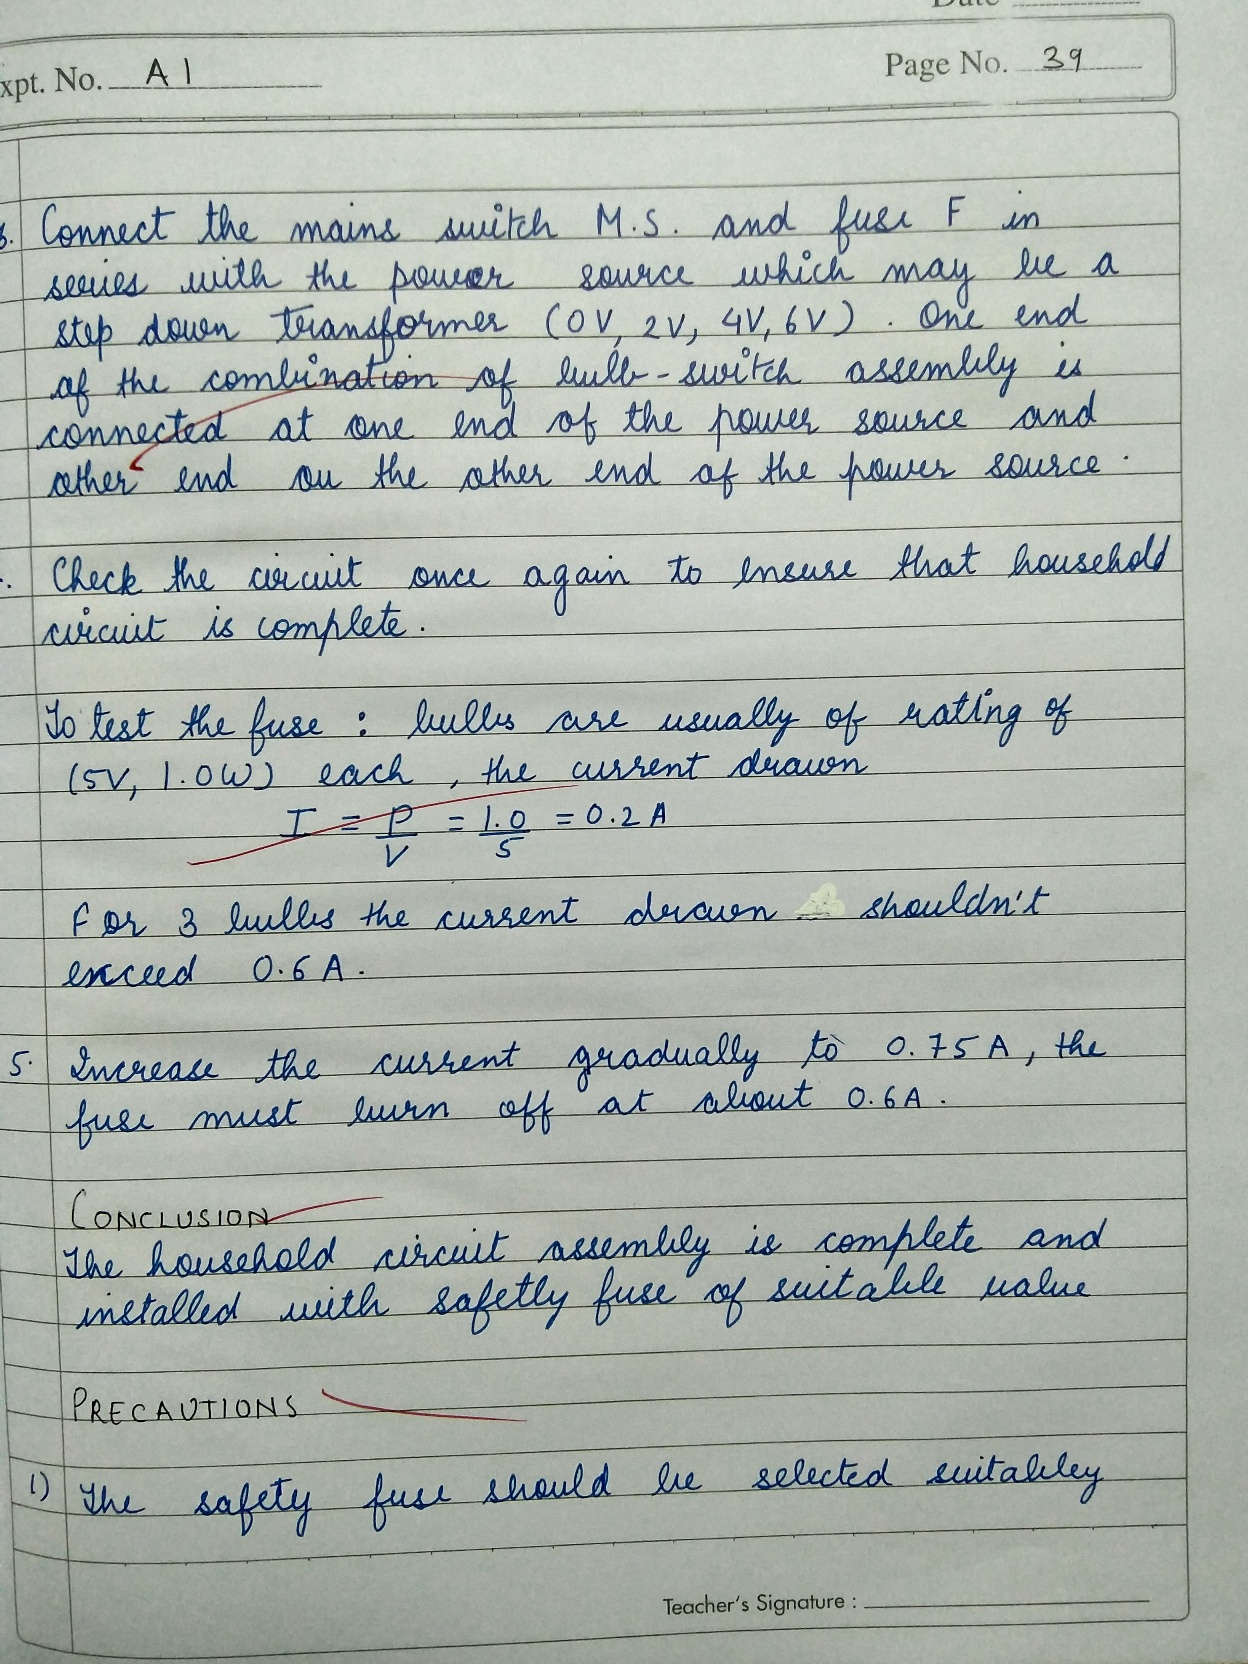 xpt. No. A1
Page No. 39
3. Connect the mains switch M.S. and fuse F in
series with the power source which may be a
step down transformer (0V, 2V, 4V, 6V). One end
of the combination of bulb-switch assembly is
connected at one end of the power source and
other end on the other end of the power source.
Check the circuit once again to ensure that household
circuit is complete.
To test the fuse : bulbs are usually of rating of
(5V, 1.0W) each, the current drawn
I = P/V = 1.0/5 = 0.2 A
For 3 bulbs the current drawn shouldn't
exceed 0.6 A.
5. Increase the current gradually to 0.75 A, the
fuse must burn off at about 0.6A.
CONCLUSION
The household circuit assembly is complete and
installed with safetly fuse of suitable value
PRECAUTIONS
1) The safety fuse should be selected suitabley
Teacher's Signature :